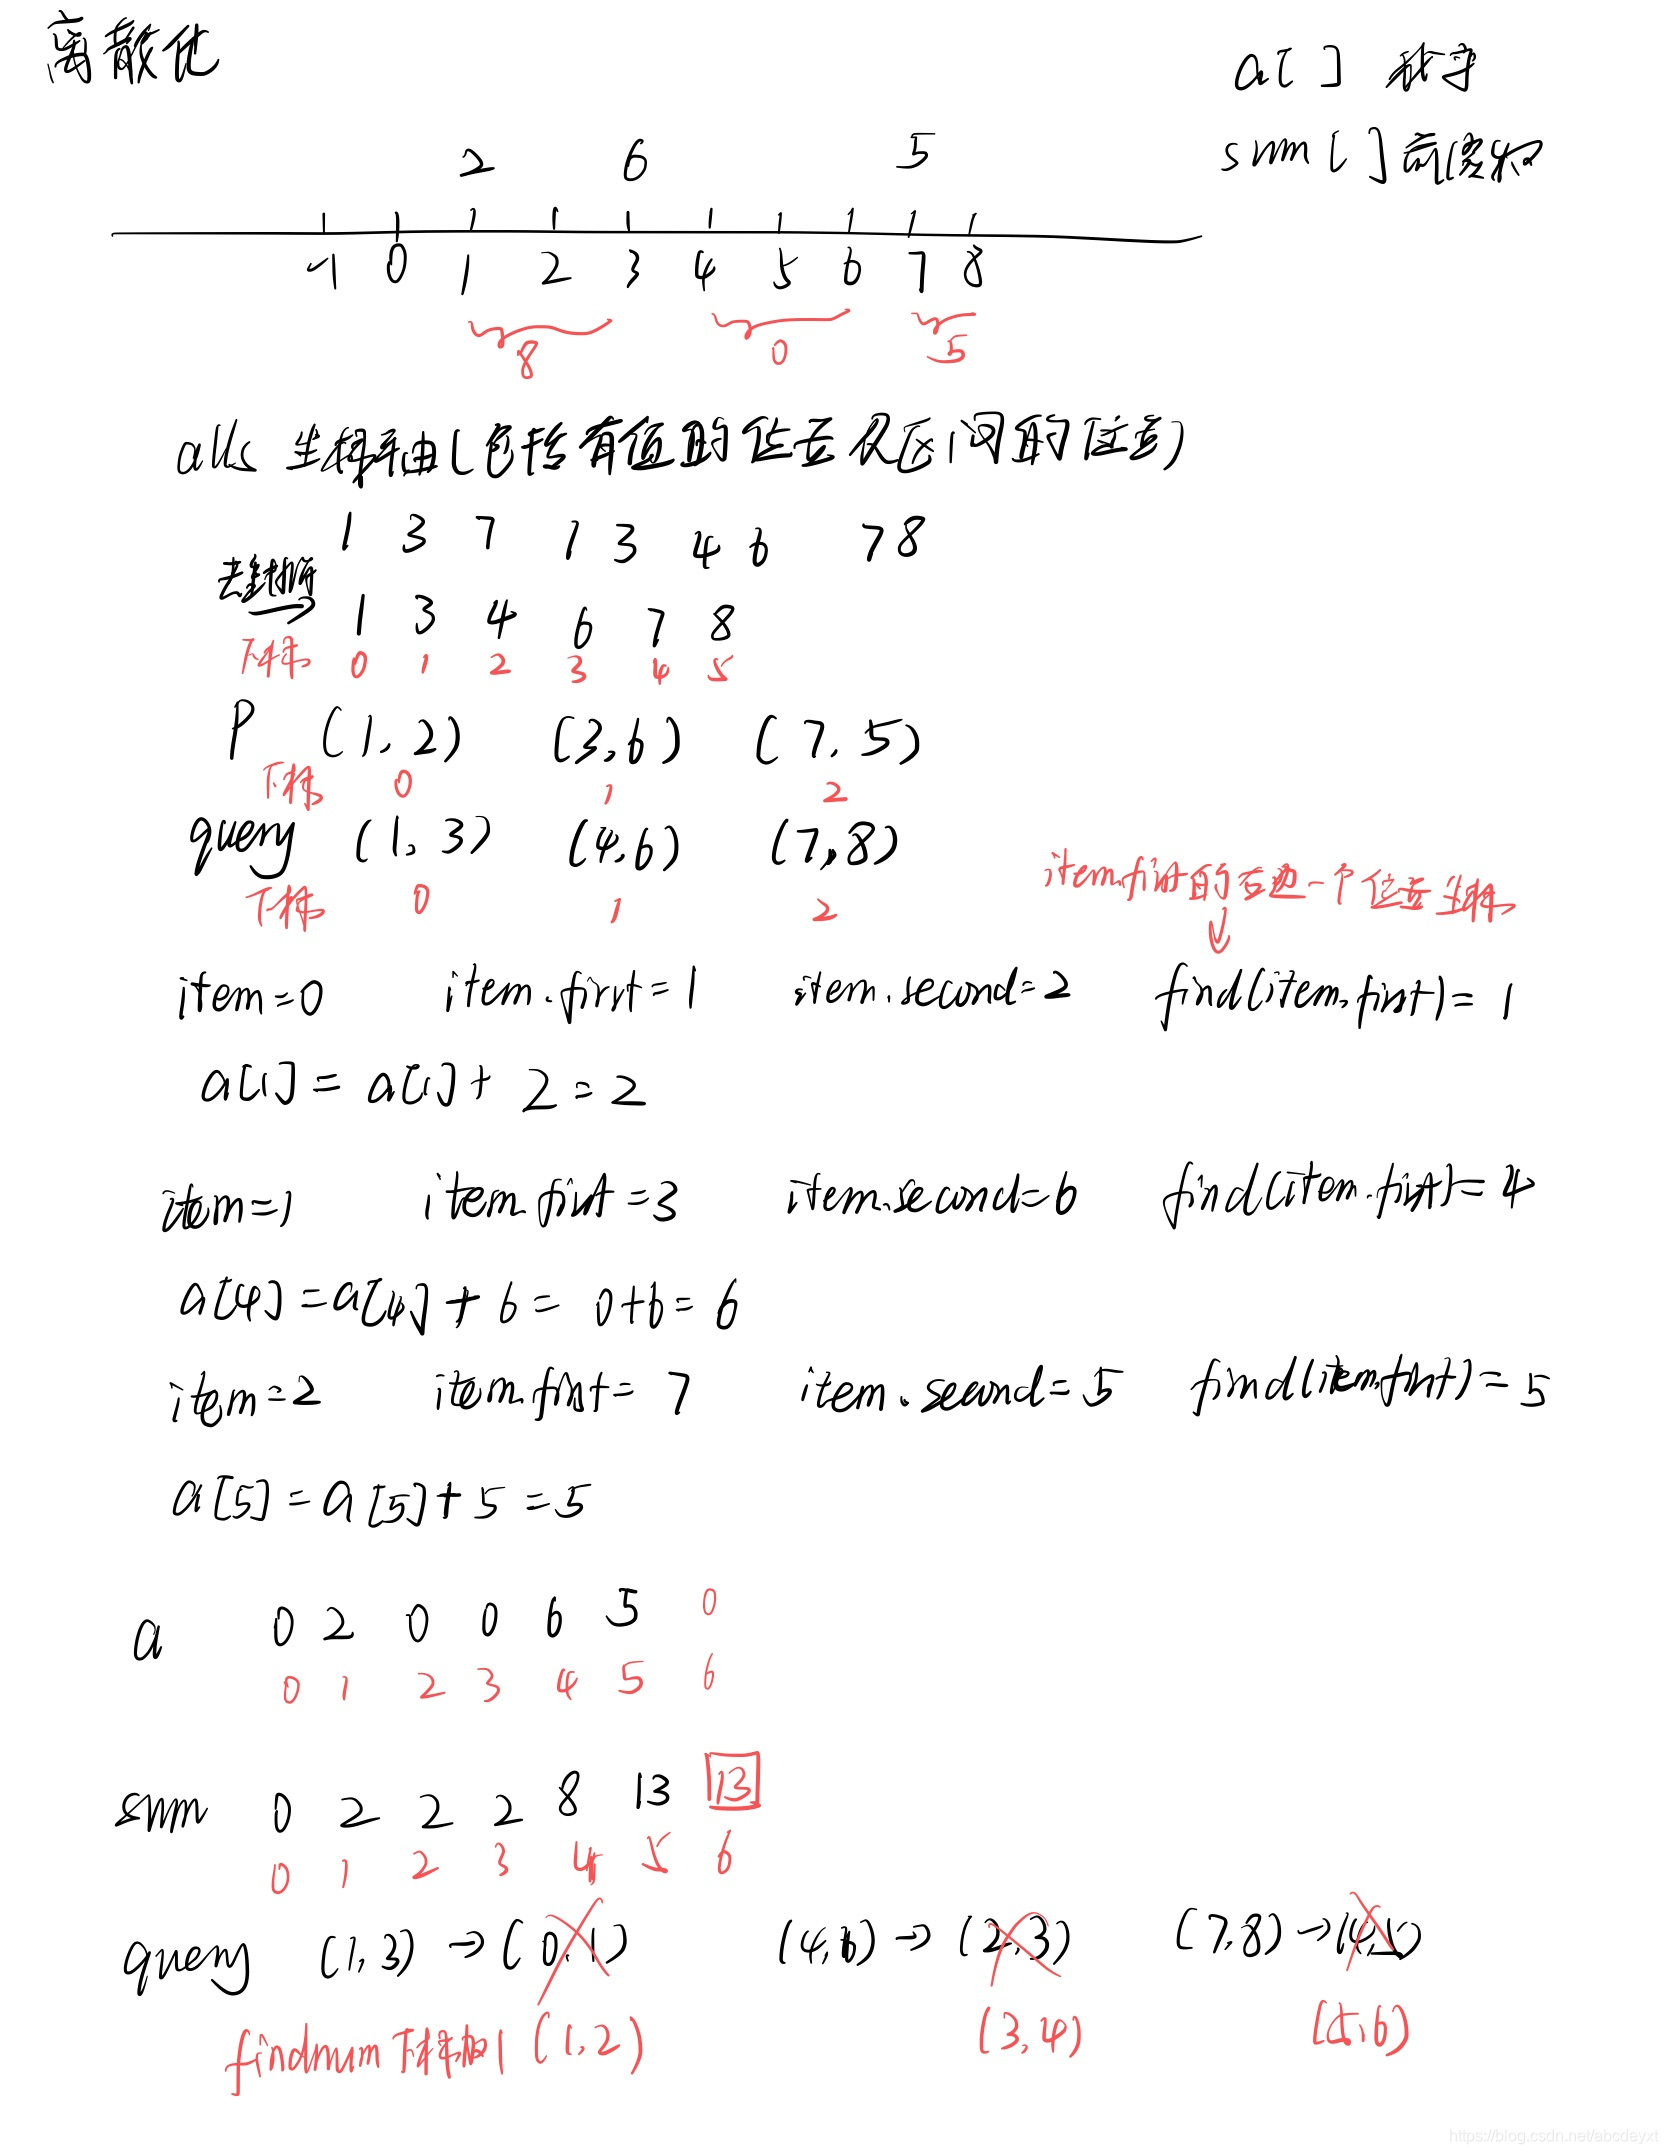 离散化
a[ ] 数字
sum[ ] 前缀和
2 6 5
-1 0 1 2 3 4 5 6 7 8
8 0 5
alls 坐标轴(包括有值的位置及区间的位置)
1 3 7 1 3 4 6 7 8
去重排序
1 3 4 6 7 8
下标 0 1 2 3 4 5
P (1, 2) (3,6) (7, 5)
下标 0 1 2
query (1, 3) (4,6) (7,8)
下标 0 1 2
item.first的右边一个位置坐标
↓
item=0 item.first=1 item.second=2 find(item.first)=1
a[1]=a[1]+2=2
item=1 item.first=3 item.second=6 find(item.first)=4
a[4]=a[4]+6=0+6=6
item=2 item.first=7 item.second=5 find(item.first)=5
a[5]=a[5]+5=5
a 0 2 0 0 6 5 0
0 1 2 3 4 5 6
sum 0 2 2 2 8 13 13
0 1 2 3 4 5 6
query (1,3)→(0,1) (4,6)→(2,3) (7,8)→(4,5)
findnum下标加1 (1,2) (3,4) (5,6)
https://blog.csdn.net/abcdeyxt